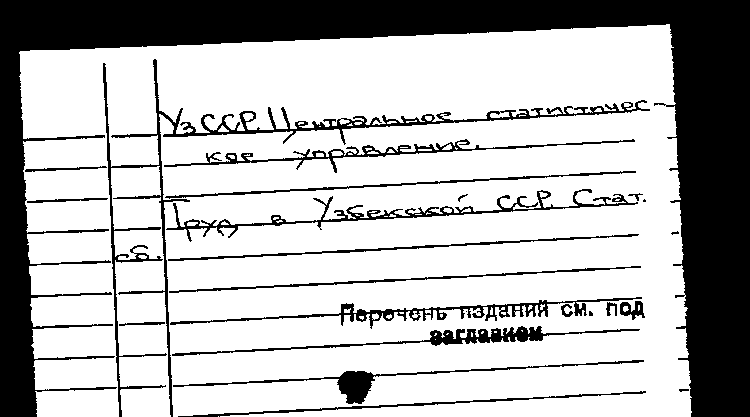 УзССР. Центральное статистичес-
кое управление.
Труд в Узбекской ССР. Стат.
сб.
Перечень изданий см. под
заглавием